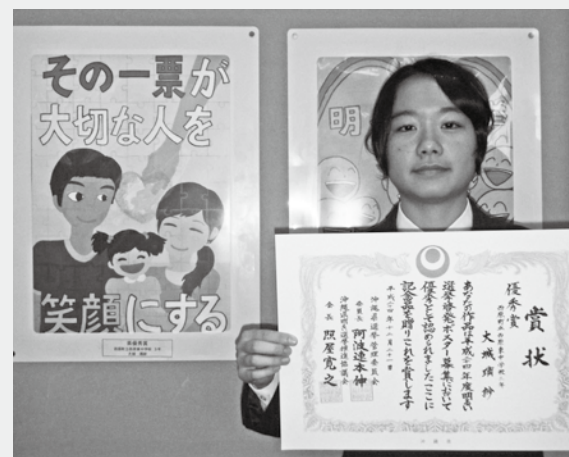 その一票が
大切な人を
笑顔にする
明
賞状
優秀賞
大城
あなたの作品は平成二四年度明るい
選挙啓発ポスター募集において
優秀と認められましたここに
記念品を贈りこれを賞します
平成二四年十二月二十一日
沖縄県選挙管理委員会
委員長 阿波連本伸
沖縄県明るい選挙推進協議会
会長 照屋寛之